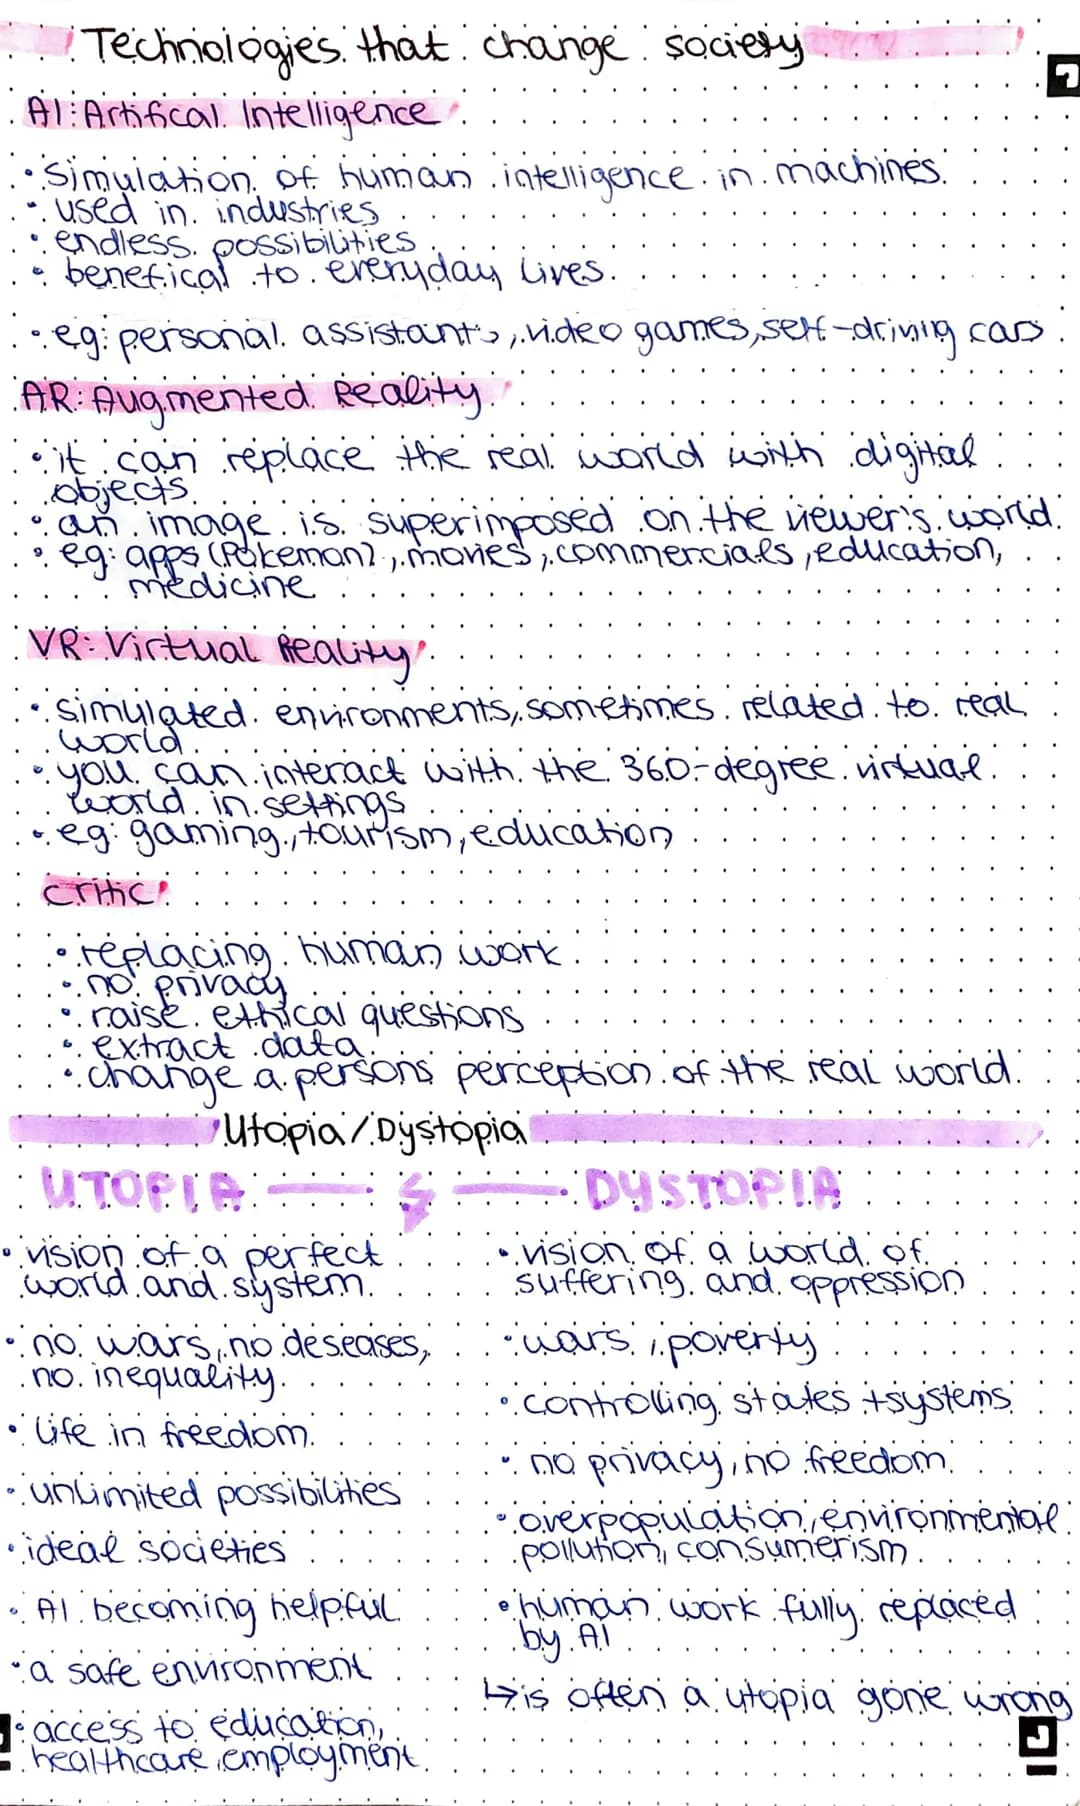 Technologies that change society
AI: Artifical Intelligence
• Simulation of human intelligence in machines.
• used in industries
• endless possibilities
• benefical to everyday lives.
• eg: personal assistants, video games, self-driving cars
AR: Augmented Reality
• it can replace the real world with digital
objects
• an image is superimposed on the viewer's world.
• eg: apps (Pokemon), movies, commercials, education,
medicine
VR: Virtual Reality
• simulated environments, sometimes related to real
world
• you can interact with the 360-degree virtual
world in settings
• eg: gaming, tourism, education
critic:
• replacing human work
• no privacy
• raise ethical questions
• extract data
• change a persons perception of the real world.
Utopia/Dystopia
UTOPIA — — DYSTOPIA
• vision of a perfect
world and system.
• no wars, no deseases,
no inequality.
• life in freedom.
• unlimited possibilities
• ideal societies
• AI becoming helpful
• a safe environment
• access to education,
healthcare, employment.
• vision of a world of
suffering and oppression
• wars, poverty
• controlling states + systems
• no privacy, no freedom
• overpopulation, environmental
pollution, consumerism.
• human work fully replaced
by AI
↳ is often a utopia gone wrong